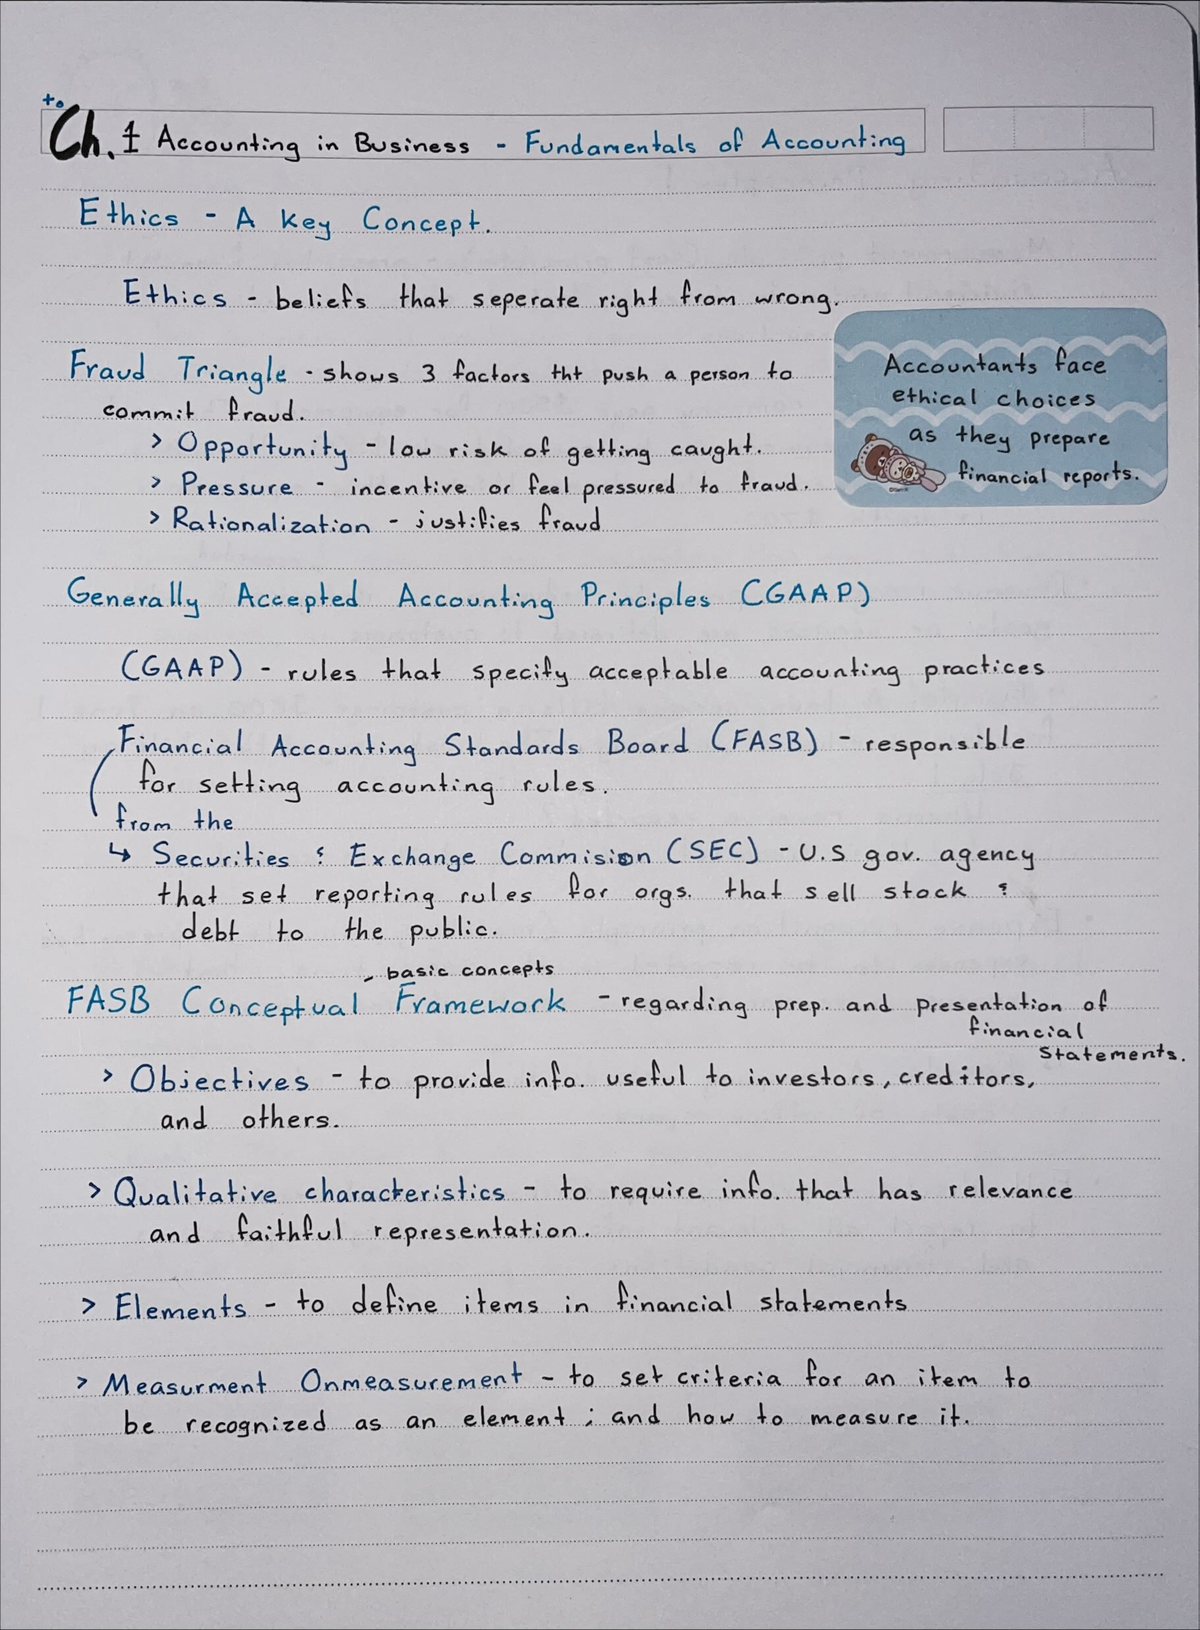 Ch. 1 Accounting in Business - Fundamentals of Accounting
Ethics - A Key Concept.
Ethics - beliefs that seperate right from wrong.
Fraud Triangle - shows 3 factors tht push a person to
commit fraud.
> Opportunity - low risk of getting caught.
> Pressure - incentive or feel pressured to fraud.
> Rationalization - justifies fraud
Accountants face
ethical choices
as they prepare
financial reports.
Generally Accepted Accounting Principles (GAAP)
(GAAP) - rules that specify acceptable accounting practices
Financial Accounting Standards Board (FASB) - responsible
for setting accounting rules.
from the
↳ Securities & Exchange Commision (SEC) - U.S gov. agency
that set reporting rules for orgs. that sell stock &
debt to the public.
basic concepts
FASB Conceptual Framework - regarding prep. and presentation of
financial
statements.
> Objectives - to provide info. useful to investors, creditors,
and others.
> Qualitative characteristics - to require info. that has relevance
and faithful representation.
> Elements - to define items in financial statements
> Measurment Onmeasurement - to set criteria for an item to
be recognized as an element ; and how to measure it.